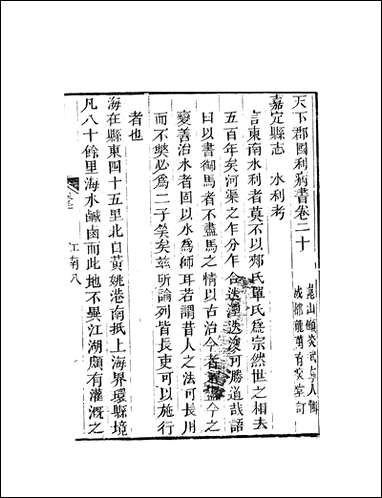 天下郡國利病書卷二十
崑山顧炎武亭人輯
成都龍萬育燮堂訂
嘉定縣志 水利考
言東南水利者莫不以郟氏單氏爲宗然世之相去
五百年矣河渠之乍分乍合迭湮迭浚可勝道哉語
曰以書御馬者不盡馬之情以古治今者不盡今之
變善治水者固以水爲師耳若謂昔人之法可長用
而不樊必爲二子笑矣兹所論列皆長吏可以施行
者也
海在縣東四十五里北自黃姚港南抵上海界環縣境
凡八十餘里海水鹹鹵而此地不異江湖頗有灌漑之
江南八